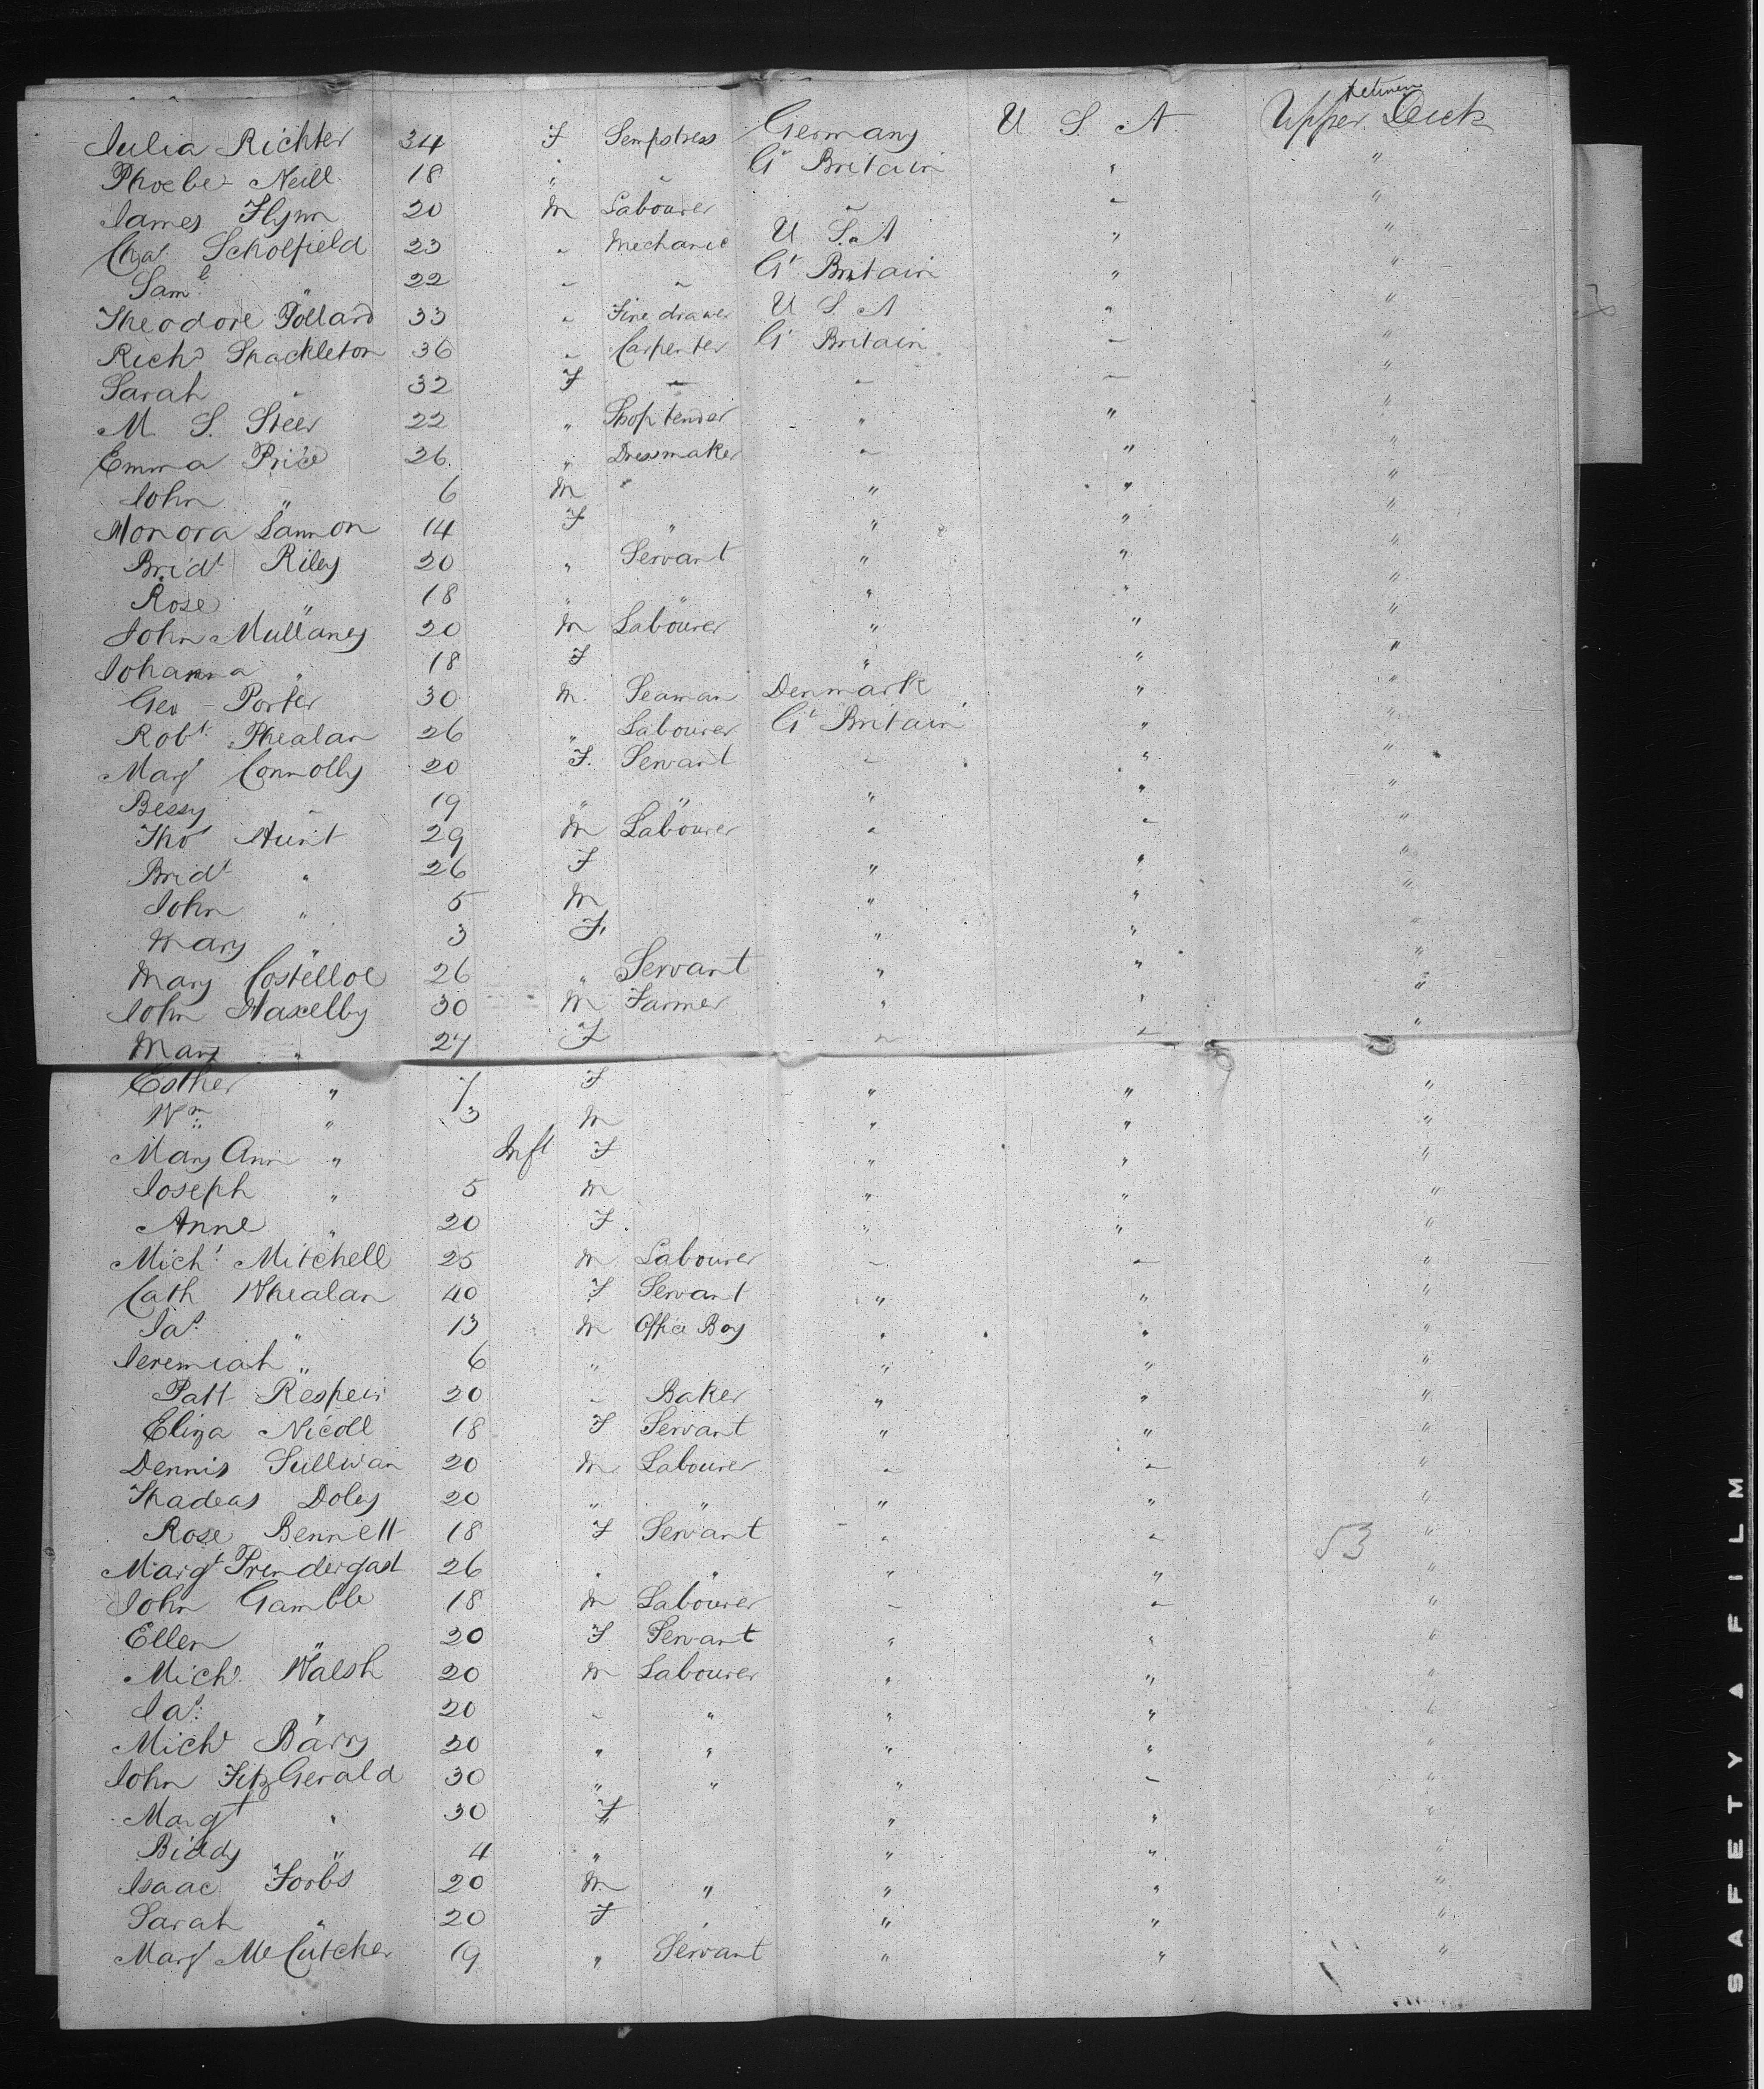 Julia Richter 34 F Sempstress Germany U S A Upper between Deck
Phoebe Neill 18 " " Gt Britain " "
James Flynn 20 M Labourer " " "
Chas Scholfield 23 " Mechanic U. S. A " "
Saml " 22 " " Gt Britain " "
Theodore Pollard 33 " Fine drawer U S A " "
Richd Shackleton 36 " Carpenter Gt Britain " "
Sarah " 32 F " " " "
M S. Steer 22 " Shop tender " " "
Emma Price 26 " Dressmaker " " "
John " 6 M " " " "
Honora Lannon 14 F " " " "
Bridt Riley 20 " Servant " " "
Rose " 18 " " " " "
John Mullaney 20 M Labourer " " "
Johanna " 18 F " " "
Geo Porter 30 M Seaman Denmark " "
Robt Phealan 26 " Labourer Gt Britain " "
Margt Connolly 20 F. Servant " " "
Bessy " 19 " " " " "
Thos Hunt 29 M Labourer " " "
Bridt " 26 F " " "
John " 5 M " " "
Mary " 3 F. " " "
Mary Costelloe 26 " Servant " " "
John Haxelby 30 M Farmer " " "
Mary " 27 F " " "
Esther " 7 F " " "
Wm " 3 M " " "
Mary Ann " Inft F " " "
Joseph " 5 M " " "
Anne " 20 F. " " "
Michl Mitchell 25 M Labourer " " "
Cath Whealan 40 F Servant " " "
Jas " 13 M Office Boy " " "
Jeremiah " 6 " " " "
Patt 20 " Baker " " "
Eliza Nicoll 18 F Servant " " "
Dennis Sullivan 20 M Labourer " " "
Thadeas Doley 20 " " " " "
Rose Bennett 18 F Servant " " 53 "
Margt Prendergast 26 " " " " "
John Gamble 18 M Labourer " " "
Ellen " 20 F Servant " " "
Michl Walsh 20 M Labourer " " "
Jas " 20 " " " " "
Michl Barry 20 " " " " "
John FitzGerald 30 " " " " "
Margt " 30 F " " "
Biddy " 4 " " " "
Isaac Forbs 20 M " " " "
Sarah " 20 F " " " "
Margt McCutcher 19 " Servant " " "
SAFETY ▲ FILM